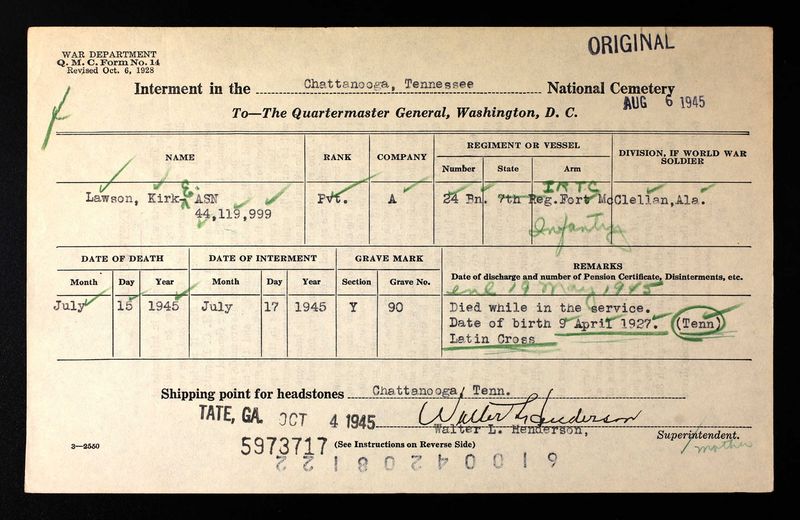 ORIGINAL
WAR DEPARTMENT
Q. M. C. Form No. 14
Revised Oct. 6, 1928
Interment in the Chattanooga, Tennessee National Cemetery
AUG 6 1945
To—The Quartermaster General, Washington, D. C.
NAME RANK COMPANY REGIMENT OR VESSEL DIVISION, IF WORLD WAR SOLDIER
Number State Arm
IRTC
Lawson, Kirk- ASN Pvt. A 24 Bn. 7th Reg. Fort McClellan, Ala.
44,119,999 Infantry
DATE OF DEATH DATE OF INTERMENT GRAVE MARK REMARKS
Month Day Year Month Day Year Section Grave No. Date of discharge and number of Pension Certificate, Disinterments, etc.
enl 19 May 1945
July 15 1945 July 17 1945 Y 90 Died while in the service.
Date of birth 9 April 1927. (Tenn)
Latin Cross
Shipping point for headstones Chattanooga, Tenn.
TATE, GA. OCT 4 1945 Walter L Henderson
Walter L. Henderson, Superintendent.
mother
3—2550 5973717 (See Instructions on Reverse Side)
61004208122